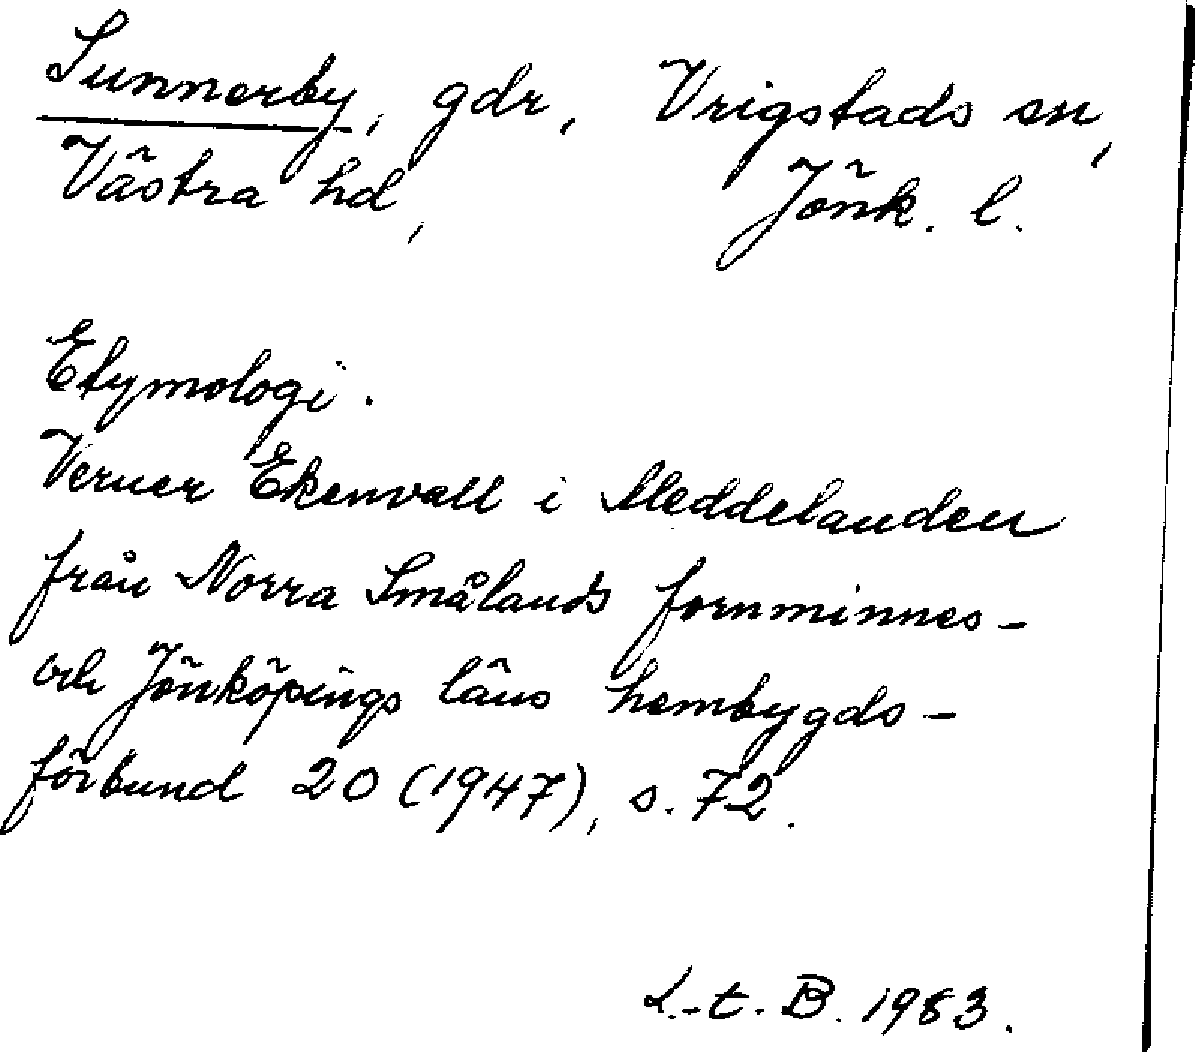 Sunnerby, gdr, Vrigstads sn,
Västra hd, Jönk. l.
Etymologi.
Verner Ekenvall i Meddelanden
från Norra Smålands fornminnes-
och Jönköpings läns hembygds-
förbund 20 (1947), s. 72.
L.-t. B. 1983.